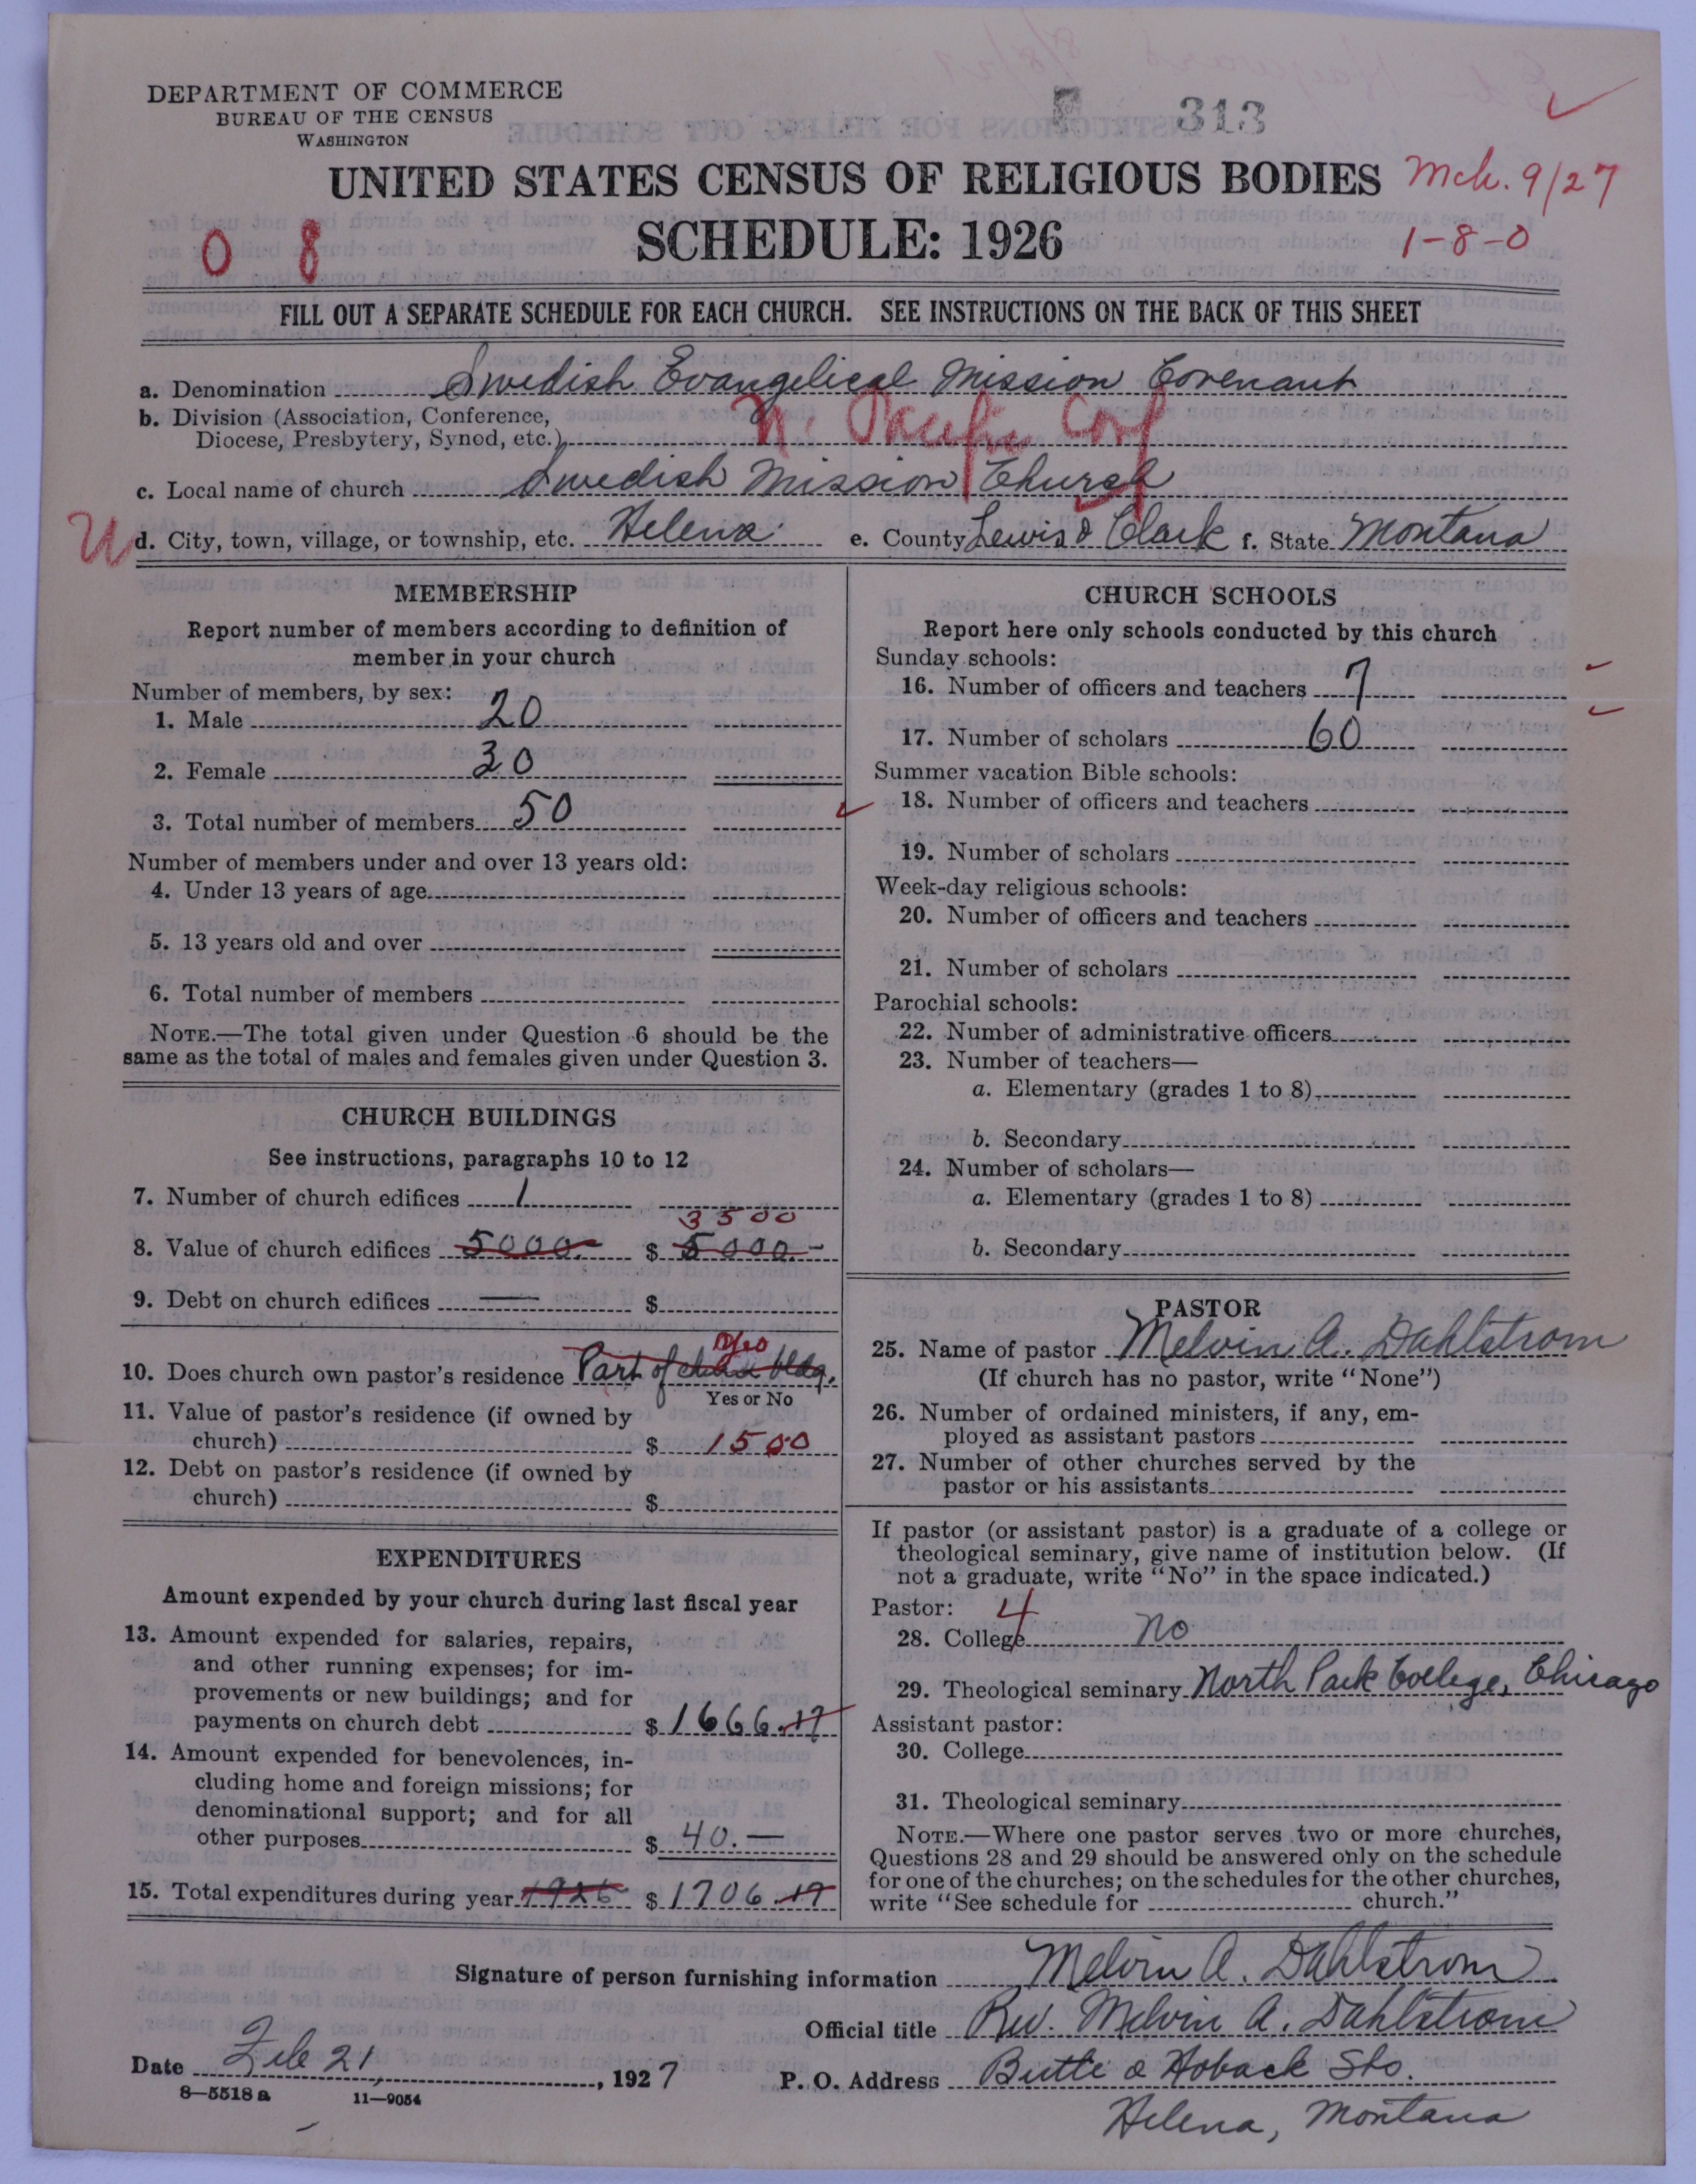 DEPARTMENT OF COMMERCE
BUREAU OF THE CENSUS
WASHINGTON
313
UNITED STATES CENSUS OF RELIGIOUS BODIES
Mch. 9/27
SCHEDULE: 1926
1-8-0
0 8
FILL OUT A SEPARATE SCHEDULE FOR EACH CHURCH. SEE INSTRUCTIONS ON THE BACK OF THIS SHEET
a. Denomination Swedish Evangelical Mission Covenant
b. Division (Association, Conference,
Diocese, Presbytery, Synod, etc.) N. Pacific Conf
c. Local name of church Swedish Mission Church
U d. City, town, village, or township, etc. Helena e. County Lewis & Clark f. State Montana
MEMBERSHIP
Report number of members according to definition of
member in your church
Number of members, by sex:
1. Male 20
2. Female 30
3. Total number of members 50
Number of members under and over 13 years old:
4. Under 13 years of age
5. 13 years old and over
6. Total number of members
NOTE.—The total given under Question 6 should be the
same as the total of males and females given under Question 3.
CHURCH BUILDINGS
See instructions, paragraphs 10 to 12
7. Number of church edifices 1
3500
8. Value of church edifices 5000.— $ 5000.—
9. Debt on church edifices — $
Yes
10. Does church own pastor's residence Part of church bldg.
Yes or No
11. Value of pastor's residence (if owned by
church) $ 1500
12. Debt on pastor's residence (if owned by
church) $
EXPENDITURES
Amount expended by your church during last fiscal year
13. Amount expended for salaries, repairs,
and other running expenses; for im-
provements or new buildings; and for
payments on church debt $ 1666.17
14. Amount expended for benevolences, in-
cluding home and foreign missions; for
denominational support; and for all
other purposes $ 40.—
15. Total expenditures during year 1926 $ 1706.17
CHURCH SCHOOLS
Report here only schools conducted by this church
Sunday schools:
16. Number of officers and teachers 7
17. Number of scholars 60
Summer vacation Bible schools:
18. Number of officers and teachers
19. Number of scholars
Week-day religious schools:
20. Number of officers and teachers
21. Number of scholars
Parochial schools:
22. Number of administrative officers
23. Number of teachers—
a. Elementary (grades 1 to 8)
b. Secondary
24. Number of scholars—
a. Elementary (grades 1 to 8)
b. Secondary
PASTOR
25. Name of pastor Melvin A. Dahlstrom
(If church has no pastor, write "None")
26. Number of ordained ministers, if any, em-
ployed as assistant pastors
27. Number of other churches served by the
pastor or his assistants
If pastor (or assistant pastor) is a graduate of a college or
theological seminary, give name of institution below. (If
not a graduate, write "No" in the space indicated.)
Pastor: 4
28. College No
29. Theological seminary North Park College, Chicago
Assistant pastor:
30. College
31. Theological seminary
NOTE.—Where one pastor serves two or more churches,
Questions 28 and 29 should be answered only on the schedule
for one of the churches; on the schedules for the other churches,
write "See schedule for church."
Signature of person furnishing information Melvin A. Dahlstrom
Official title Rev. Melvin A. Dahlstrom
Date Feb 21, 1927 P. O. Address Butte & Hoback Sts.
8—5518 a 11—9054
Helena, Montana